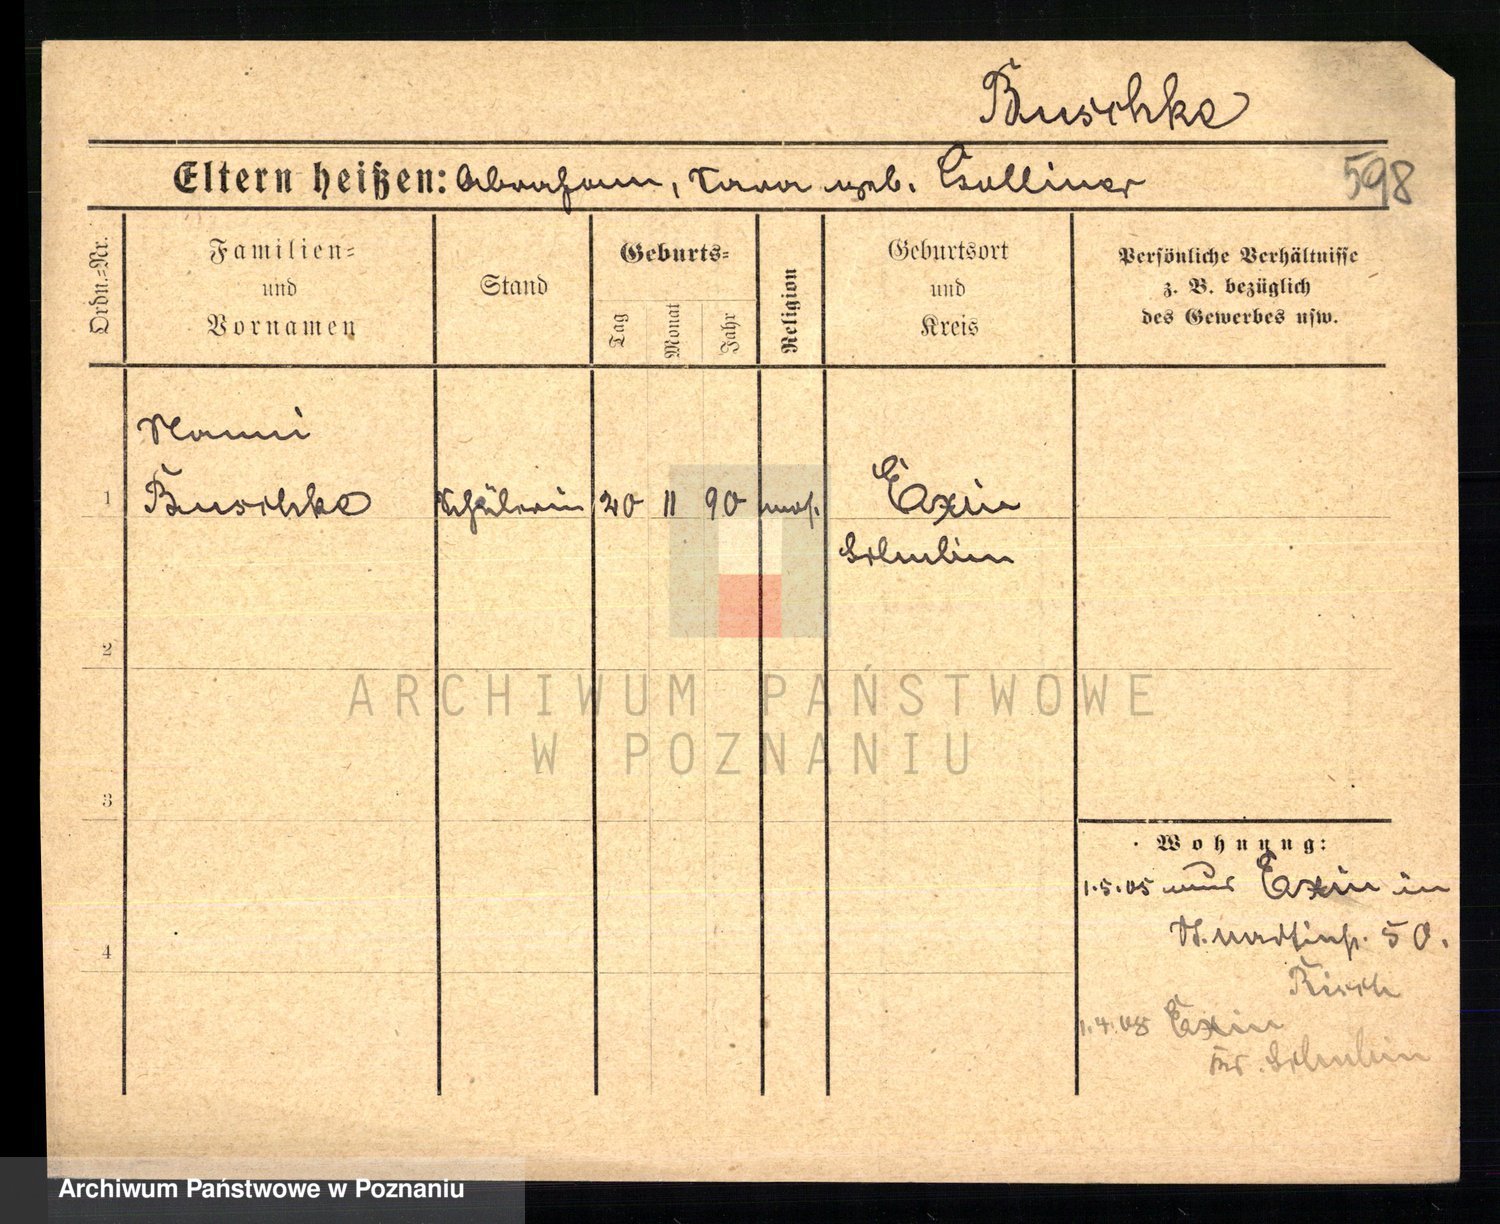 Buschke
Eltern heißen: Abraham, Sara geb. Golliner
598
Ordn.=Nr.
Familien=
und
Vornamen
Stand
Geburts=
Tag
Monat
Jahr
Religion
Geburtsort
und
Kreis
Persönliche Verhältnisse
z. B. bezüglich
des Gewerbes usw.
Nanni
1 Buschke Schülerin 20 11 90 mos. Exin
Schubin
2
3
4
Wohnung:
1.5.05 aus Exin in
50.
Kirsch
1.4.08 Exin
Kr. Schubin
ARCHIWUM PAŃSTWOWE
W POZNANIU
Archiwum Państwowe w Poznaniu